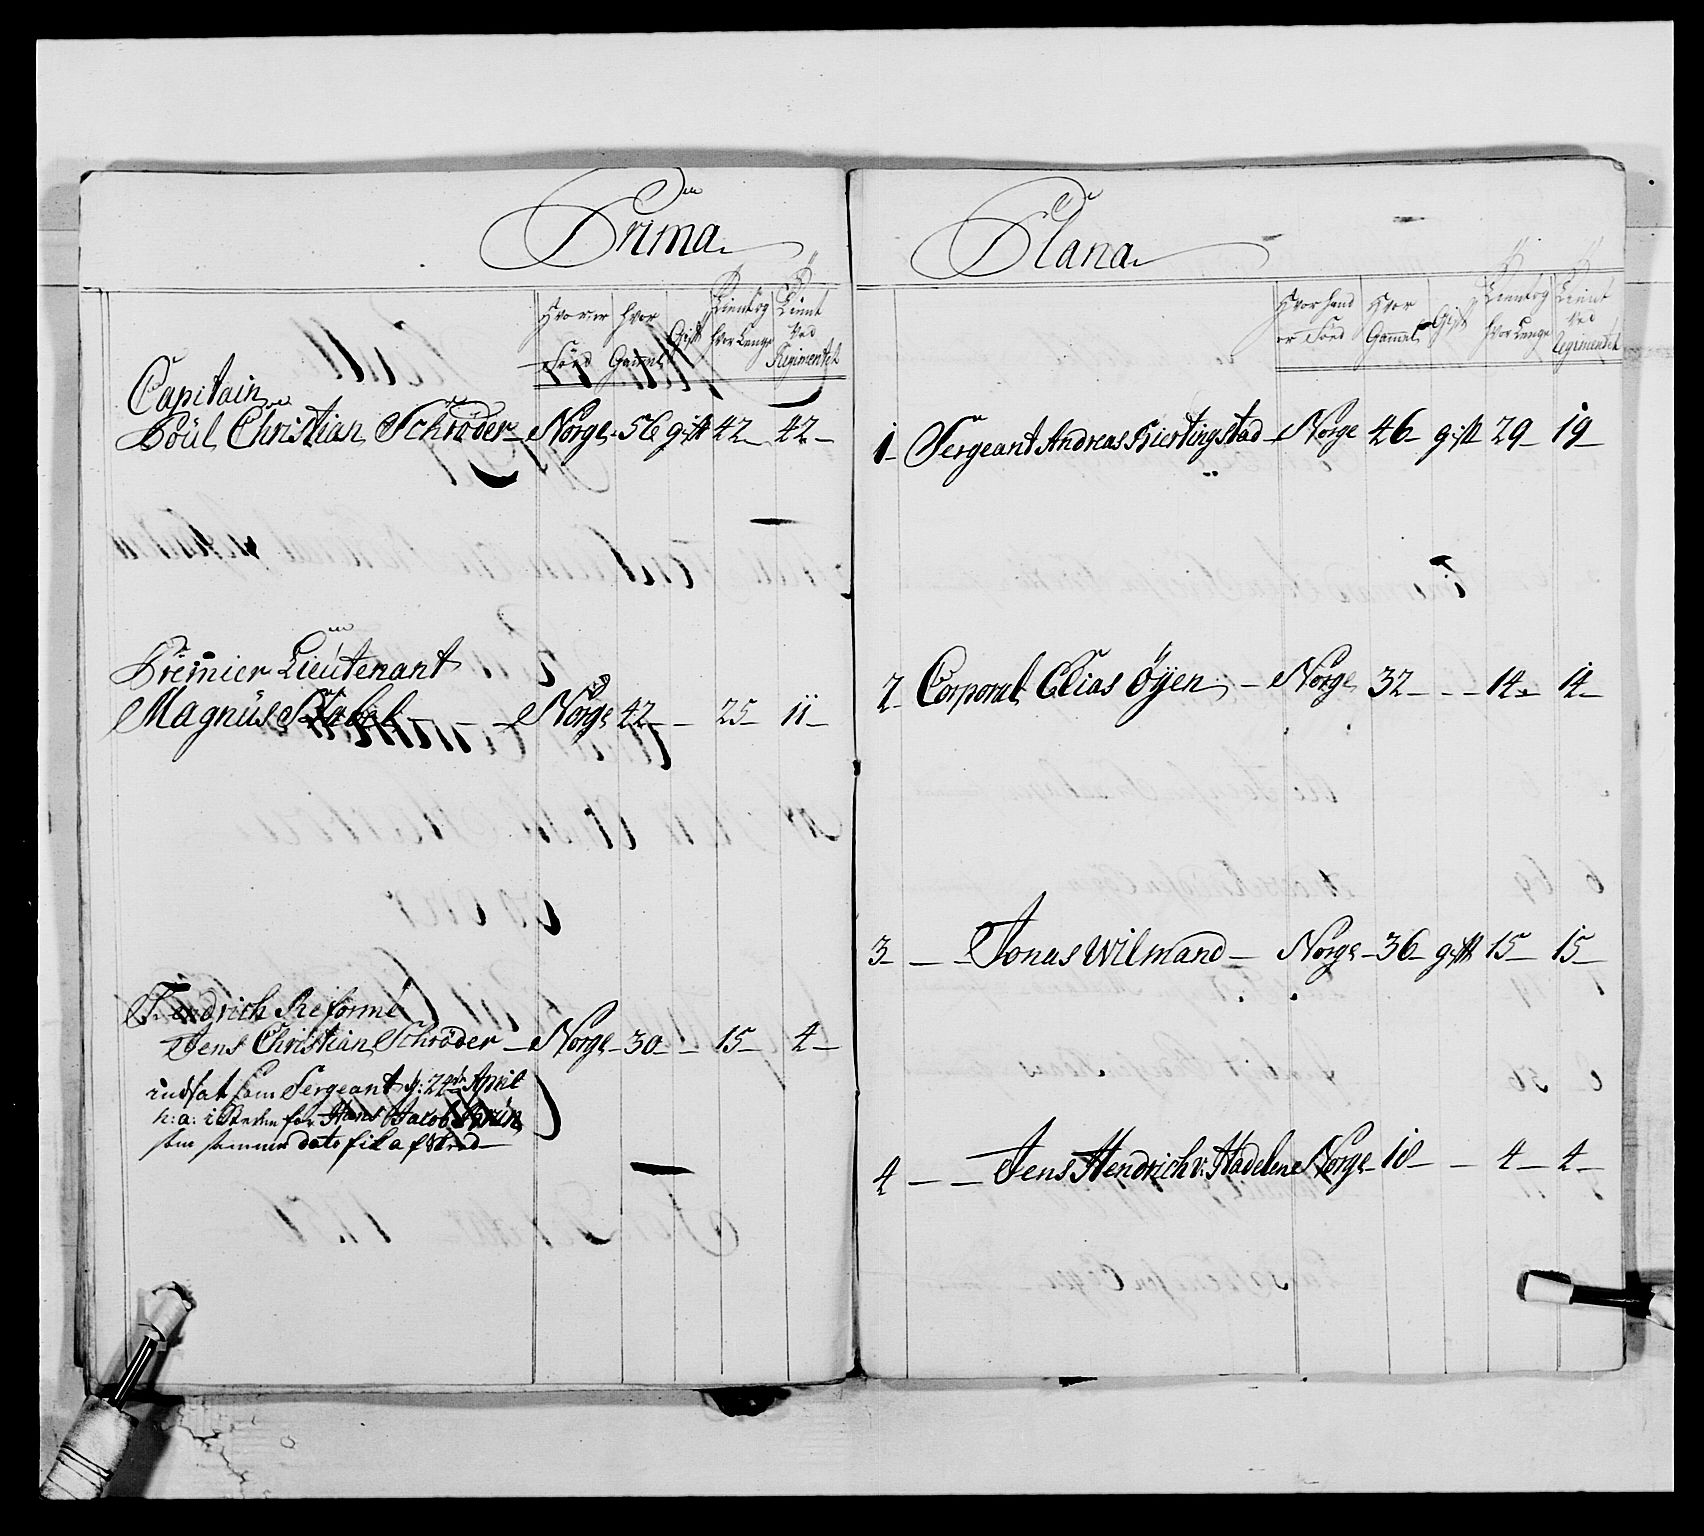 Prima
Hvor er Föed
Hvor Gammel
Gift
Tient og hvor Lenge
Tient Ved Regimentet
Capitain
Poül Christian Schröder Norge 56 gift 42 42
Premier Lieutenant
Magnüs Norge 42 25 11
Fendrich Reformé
Jens Christian Schröder Norge 30 15 4
indsat som Sergeant d: 24de April
h: a: i Steden for Hans Jacob
som samme dato fik afskeed
Plana
Hvor hand er Föed
Hvor Gammel
Gift
Tient og hvor Lenge
Tient Ved Regimentet
1 Sergeant Andreas Kiertingstad Norge 46 gift 29 19
2 Corporal Elias Öyen Norge 32 14 14
3 Jonas Wilmand Norge 36 gift 15 15
4 Jens Hendrich v: Hadelene Norge 18 4 4